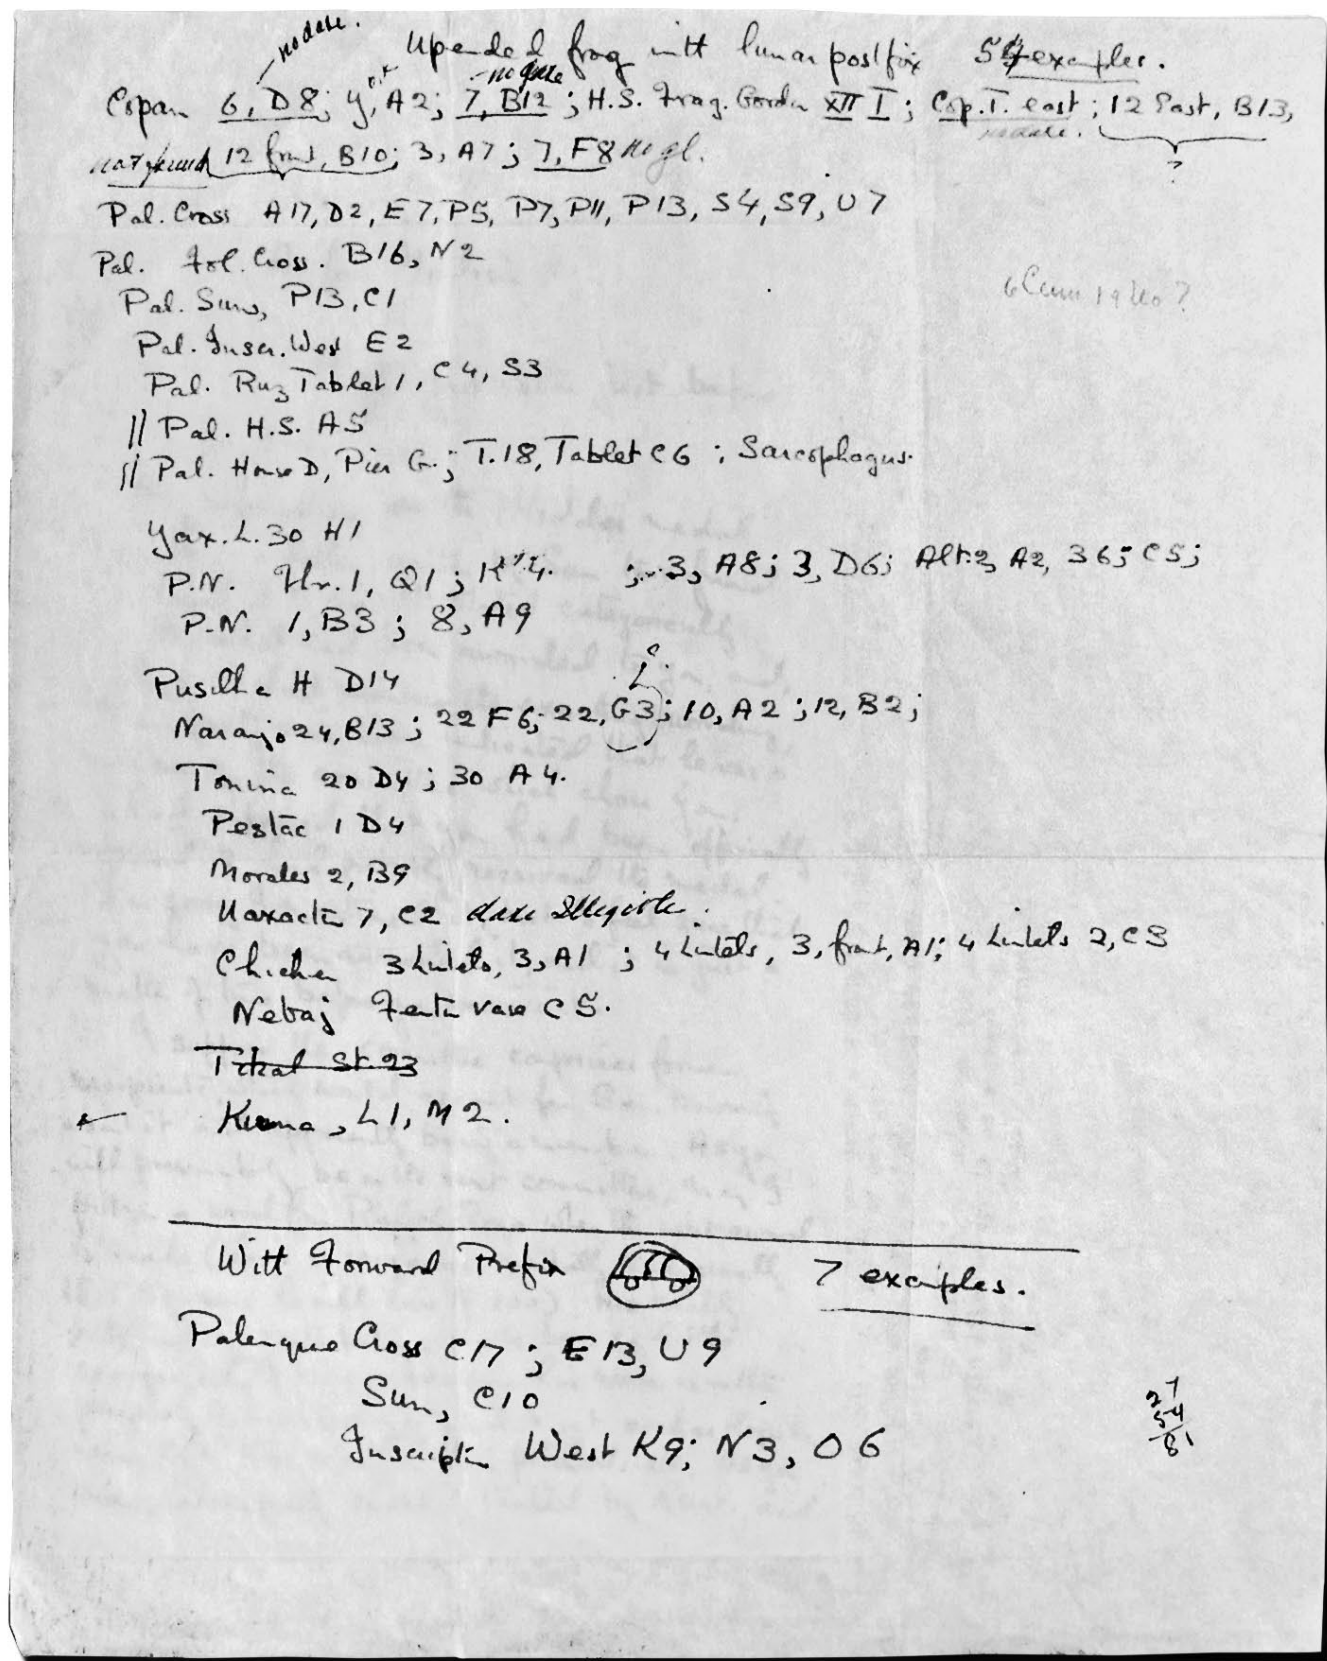 no date.
Upended frog with lunar postfix 54 examples.
o.k. no date
Copan 6, D8; y, A2; 7, B12; H.S. Frag. Gordon XII I; Cop. T. east; 12 East, B13,
no date. ?
not found 12 front, B10; 3, A7; 7, F8 no gl.
Pal. Cross A17, D2, E7, P5, P7, P11, P13, S4, S9, U7
Pal. Fol. Cross. B16, N2
6 19 Uo?
Pal. Sun, P13, C1
Pal. Inscr. West E2
Pal. Ruz Tablet 1, C4, S3
// Pal. H.S. A5
// Pal. House D, Pier G.; T.18, Tablet C6; Sarcophagus.
Yax. L. 30 H1
P.N. Thr. 1, Q1; ; 3, A8; 3, D6; Alt. 2, A2, 36; C5;
P.N. 1, B3; 8, A9
Pusilha H D14
Naranjo 24, B13; 22 F6; 22, G3; 10, A2; 12, B2;
Tonina 20 D4; 30 A4.
Pestac 1 D4
Morales 2, B9
Uaxactn 7, C2 date Illegible.
Chichen 3 Lintels, 3, A1; 4 Lintels, 3, front, A1; 4 Lintels 2, C3
Nebaj Fenton vase C5.
Tikal St. 23
Kuna, L1, M2.
With Forward Prefix 7 examples.
Palenque Cross C17; E13, U9
Sun, C10
Inscription West K9; N3, O6
27
54
81